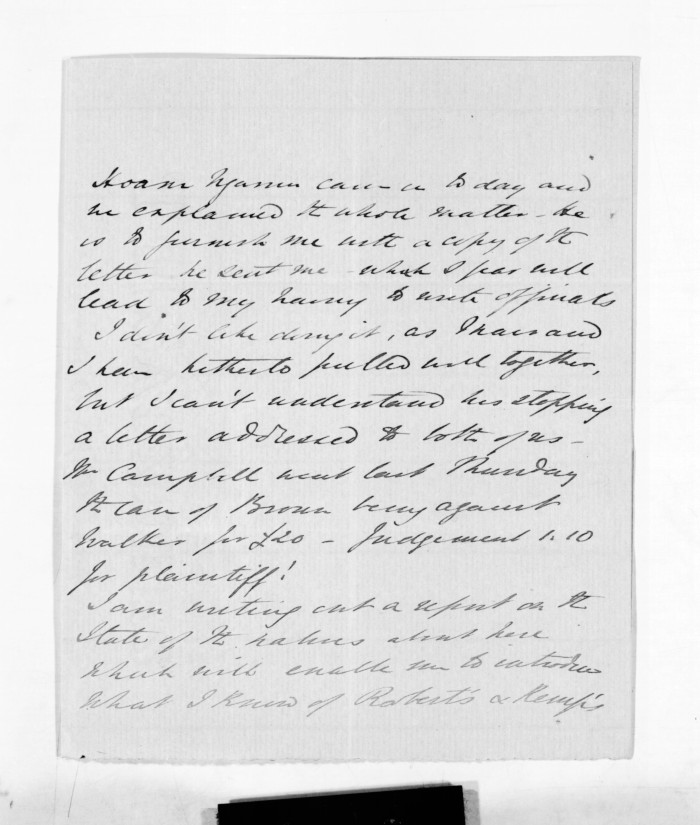 Hoani Ngamu came in to day and
we explained the whole matter - He
is to furnish me with a copy of the
letter he sent me - which I fear will
lead to my having to write officials
I don't like doing it, as and
I have hitherto pulled well together,
but I can't understand his stopping
a letter addressed to both of us -
Mr Campbell went last Thursday
the case of Brown being against
Walker for £20 - Judgement 1.10
for plaintiff!
I am writing out a report on the
State of the natives about here
which will enable me to introduce
what I know of Robert's & Kemp's